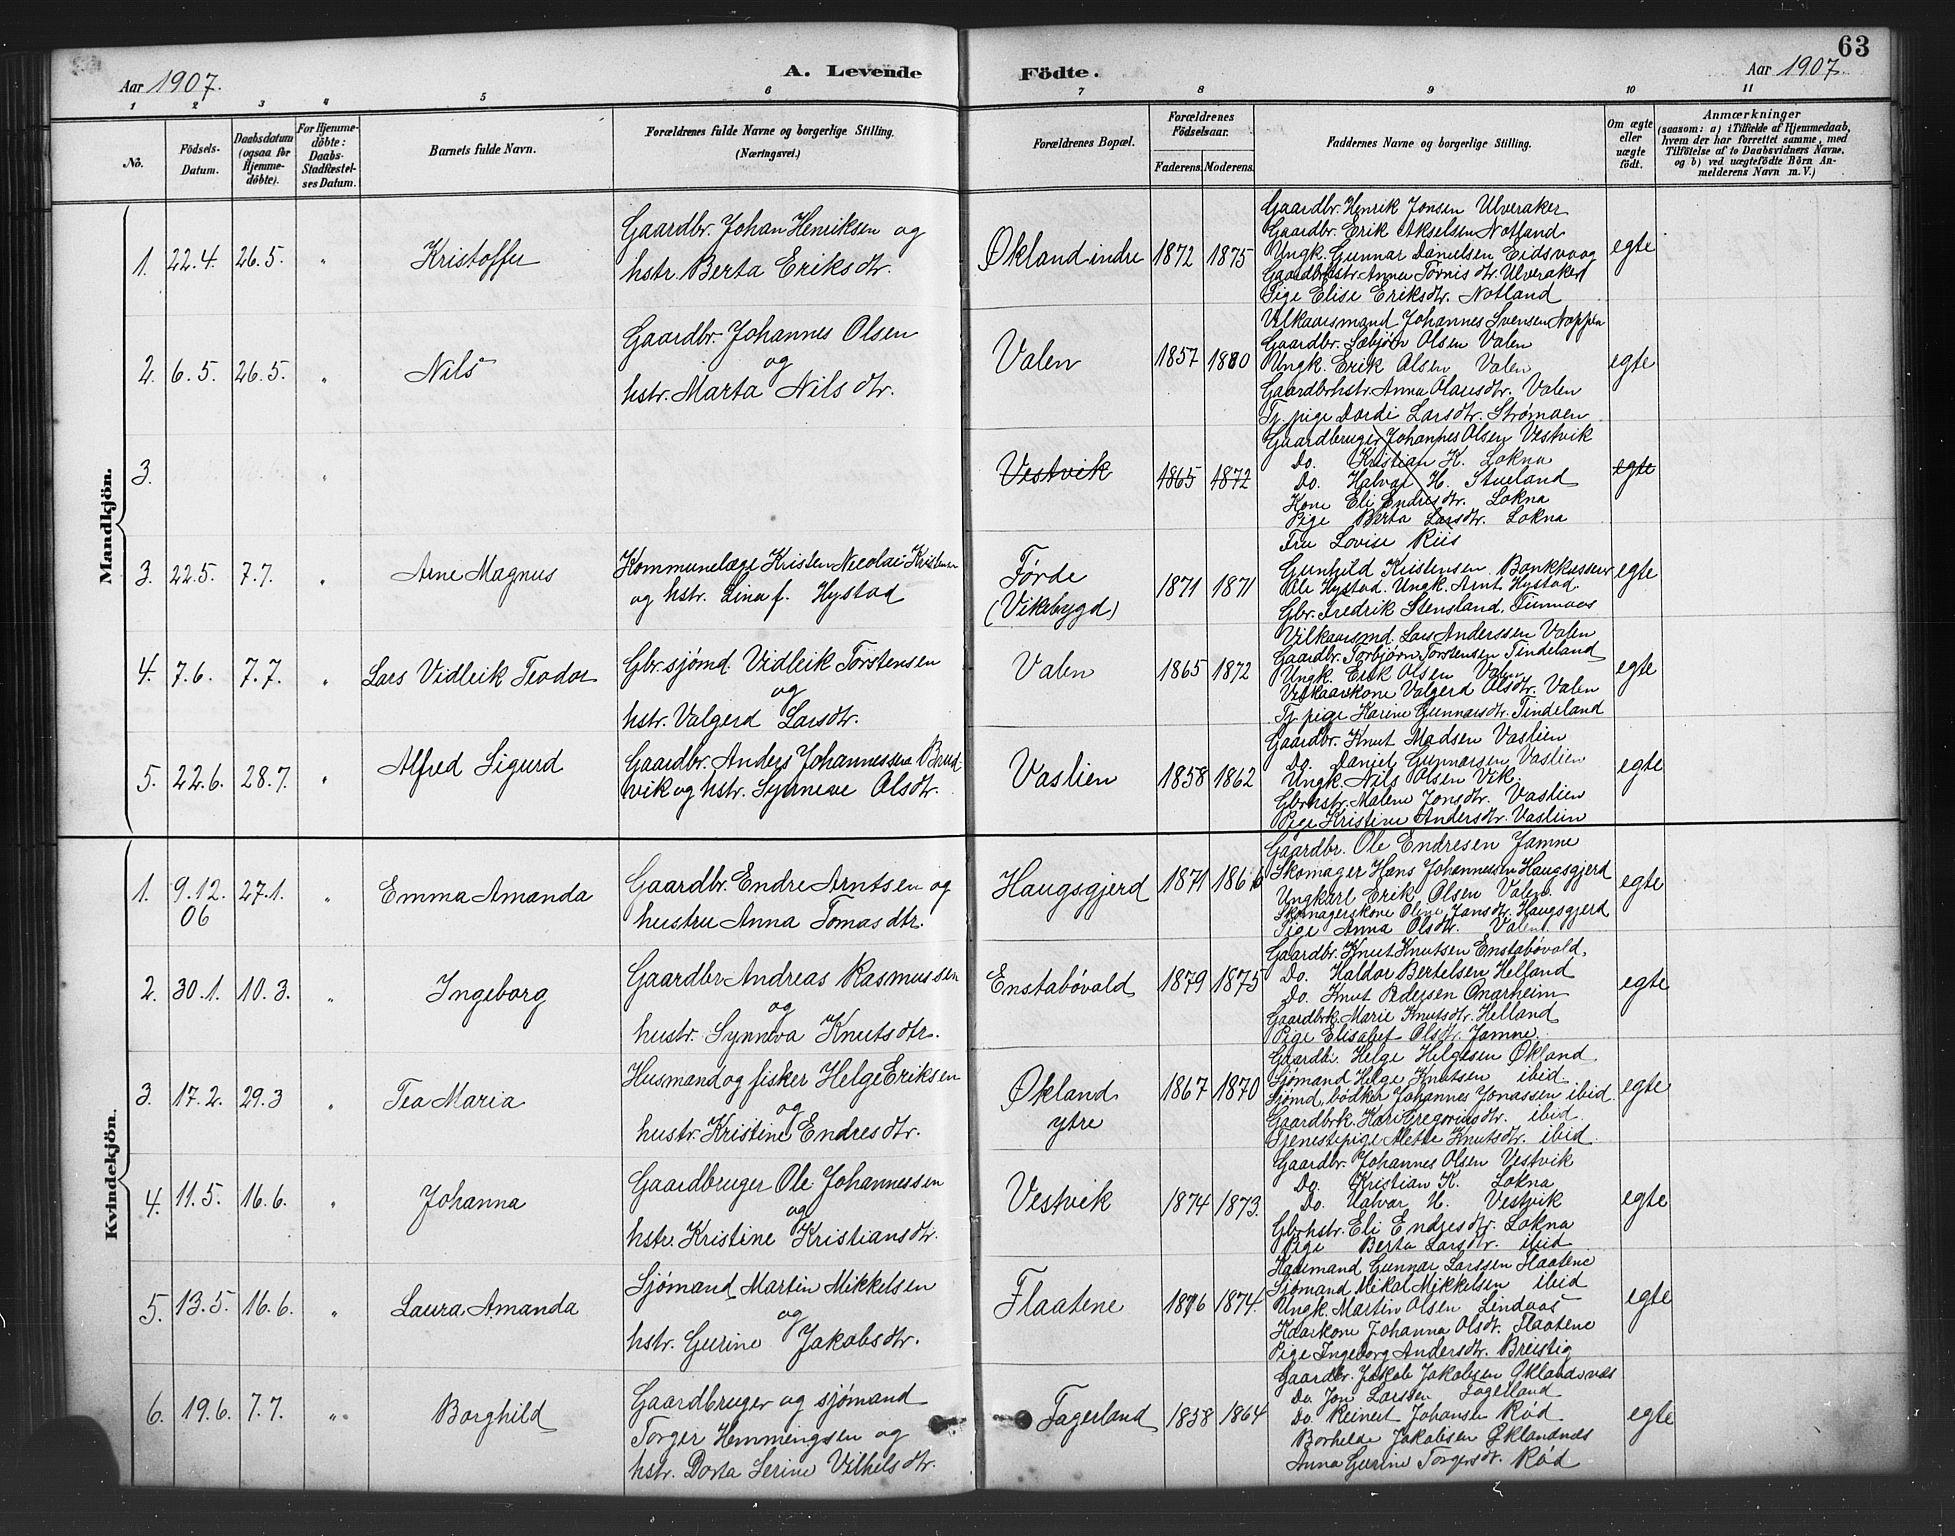 63
Aar 1907.
A. Levende Födte.
Aar 1907.
1 2 3 4 5 6 7 8 9 10 11
No.
Födsels-Datum.
Daabsdatum (ogsaa for Hjemme-döbte).
For Hjemme-döbte: Daabs-Stadfæstel-ses Datum.
Barnets fulde Navn.
Forældrenes fulde Navne og borgerlige Stilling.
(Næringsvei.)
Forældrenes Bopæl.
Forældrenes Födselsaar.
Faderens. Moderens.
Faddernes Navne og borgerlige Stilling.
Om ægte eller uægte födt.
Anmærkninger
(saasom: a) i Tilfælde af Hjemmedaab,
hvem der har forrettet samme, med
Tilföielse af to Daabsvidners Navne,
og b) ved uægtefödte Börn An-
melderens Navn m. V.)
Mandkjön.
1. 22.4. 26.5. " Kristoffer
Gaardbr. Johan Henriksen og
hstr. Berta Eriksdtr.
Økland indre 1872 1875
Gaardbr. Henrik Jonsen Ulveraker
Gaardbr. Erik Akselsen Notland
Ungk. Gunnar Danielsen Eidsvaag
Gaardbrhstr. Anna Tørrisdtr. Ulveraker
Pige Elise Eriksdtr. Notland
egte
2. 6.5. 26.5. " Nils
Gaardbr. Johannes Olsen
og
hstr. Marta Nilsdtr.
Valen 1857 1880
Vilkaarsmand Johannes Svensen Nappen
Gaardbr. Sæbjörn Olsen Valen
Ungk. Erik Olsen Valen
Gaardbrhstr. Anna Olausdtr. Valen
Tj. pige Dordi Larsdtr. Strømøen
egte
3. "
Vestvik 1865 1872
Gaardbruger Johannes Olsen Vestvik
Do. Kristian K. Lokna
Do. Halvar H. Stueland
Kone Eli Endresdtr. Lokna
Pige Berta Larsdtr. Lokna
egte
3. 22.5. 7.7. " Arne Magnus
Kommunelæge Kristen Nicolai Kristensen
og hstr. Lina f. Hystad
Førde
(Vikebygd)
1871 1871
Fru Lovise Riis
Gunhild Kristensen Bankkasserer
Ole Hystad. Ungk. Arnt Hystad.
Gbr. Fredrik Stensland. Finnaas
egte
4. 7.6. 7.7. " Lars Vidleik Teodor
Gbr. sjømd. Vidleik Torstensen
og
hstr. Valgerd Larsdtr.
Valen 1865 1872
Vilkaarsmd. Lars Anderssen Valen
Gaardbr. Torbjørn Torstensen Tindeland
Ungk. Erik Olsen Valen
Vilkaarskone Valgerd Olsdtr. Valen
Tj. pige Karine Gunnarsdtr. Tindeland
egte
5. 22.6. 28.7. " Alfred Sigurd
Gaardbr. Anders Johannessen Brud
vik og hstr. Synneve Olsdtr.
Vaslien 1858 1862
Gaardbr. Knut Madsen Vaslien
Do. Daniel Gunnarsen Vaslien
Ungk. Nils Olsen Vik.
Gbrhstr. Malene Jonsdtr. Vaslien
Pige Kristine Andersdtr. Vaslien
egte
Kvindekjön.
1. 9.12. 06 27.1. " Emma Amanda
Gaardbr. Endre Arntsen og
hustru Anna Tomasdtr.
Haugsgjerd 1871 1866
Gaardbr. Ole Endresen Jamne
Skomager Hans Johannessen Haugsgjerd
Ungkarl Erik Olsen Valen.
Skomagerskone Oline Jansdtr. Haugsgjerd
Pige Anna Olsdtr. Valen
egte
2. 30.1. 10.3. " Ingeborg
Gaardbr. Andreas Rasmussen
og
hustr. Synneva Knutsdtr.
Enstabövold 1879 1875
Gaardbr. Knut Knutsen Enstabövold.
Do. Haldor Bertelsen Helland
Do. Knut Pedersen Onarheim
Gaardbrk. Marie Knutsdtr. Helland
Pige Elisabet Olsdtr. Jamne
egte
3. 17.2. 29.3 " Tea Maria
Husmand og fisker Helge Eriksen
og
hustr. Kristine Endresdtr.
Økland
ytre
1867 1870
Gaardbr. Helge Helgesen Økland.
Sjømand Helge Knutsen ibid
Sjømd. bödker Johannes Jonassen ibid.
Gaardbrk. Kari Gregoriusdtr. ibid.
Tjenestepige Mette Knutsdtr. ibid.
egte
4. 11.5. 16.6. " Johanna
Gaardbruger Ole Johannessen
og
hstr. Kristine Kristiansdtr.
Vestvik 1874 1873.
Gaardbr. Johannes Olsen Vestvik
Do. Kristian K. Lokna
Do. Halvar H. Vestvik
Gbrhstr. Eli Endresdtr. Lokna
Pige Berta Larsdtr. ibid
egte
5. 13.5. 16.6. " Laura Amanda
Sjömand Martin Mikkelsen
og
hstr. Gurine Jakobsdtr.
Flaatene 1876 1874.
Kaarmand Gunnar Larssen Flaatene
Sjømand Mikal Mikkelsen ibid
Ungk. Martin Olsen Lindaas
Kaarkone Johanna Olsdtr. Flaatene
Pige Ingeborg Andersdtr. Breistig
egte
6. 19.6. 7.7. " Borghild
Gaardbruger og sjømand
Torger Hemmingsen og
hstr. Dorta Serine Vilhelsdtr.
Fagerland 1858 1864
Gaardbr. Jakob Jakobsen Øklandsnæs
Do. Jon Larssen Fagerland
Do. Reinert Johansen Rød
Borhilde Jakobsen Øklandnes
Anna Gurine Torgersdtr. Rød
egte